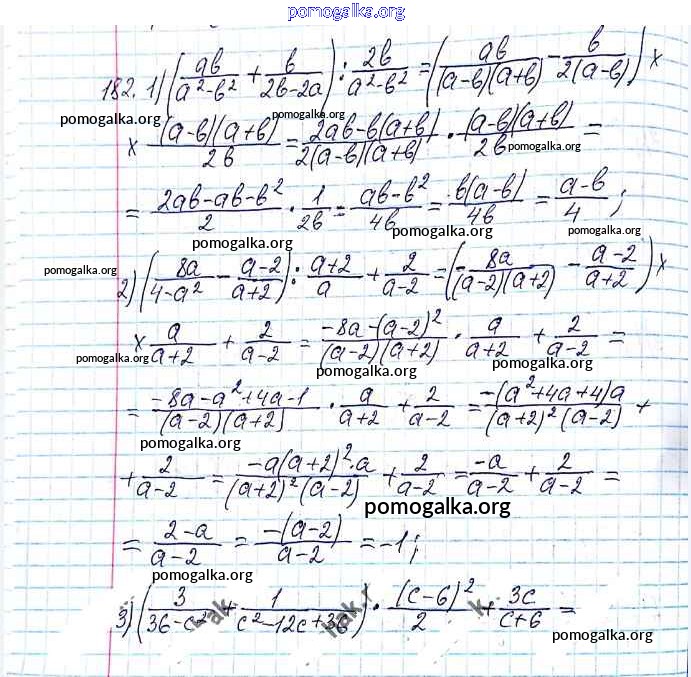 pomogalka.org
182. 1) (ab/(a²-b²) + b/(2b-2a)) : 2b/(a²-b²) = (ab/((a-b)(a+b)) - b/(2(a-b))) ×
pomogalka.org pomogalka.org
× ((a-b)(a+b))/2b = (2ab-b(a+b))/(2(a-b)(a+b)) · ((a-b)(a+b))/2b =
pomogalka.org
= (2ab-ab-b²)/2 · 1/2b = (ab-b²)/4b = (b(a-b))/4b = (a-b)/4 ;
pomogalka.org pomogalka.org pomogalka.org
pomogalka.org 2) (8a/(4-a²) - (a-2)/(a+2)) : (a+2)/a + 2/(a-2) = (-8a/((a-2)(a+2)) - (a-2)/(a+2)) ×
× a/(a+2) + 2/(a-2) = (-8a-(a-2)²)/((a-2)(a+2)) · a/(a+2) + 2/(a-2) =
pomogalka.org pomogalka.org pomogalka.org
= (-8a-a²+4a-1)/((a-2)(a+2)) · a/(a+2) + 2/(a-2) = (-(a²+4a+4)a)/((a+2)²(a-2)) +
pomogalka.org
+ 2/(a-2) = (-a(a+2)²·a)/((a+2)²(a-2)) + 2/(a-2) = -a/(a-2) + 2/(a-2) =
pomogalka.org
= (2-a)/(a-2) = (-(a-2))/(a-2) = -1 ;
pomogalka.org
3) (3/(36-c²) + 1/(c²-12c+36)) · (c-6)²/2 + 3c/(c+6) =
pomogalka.org